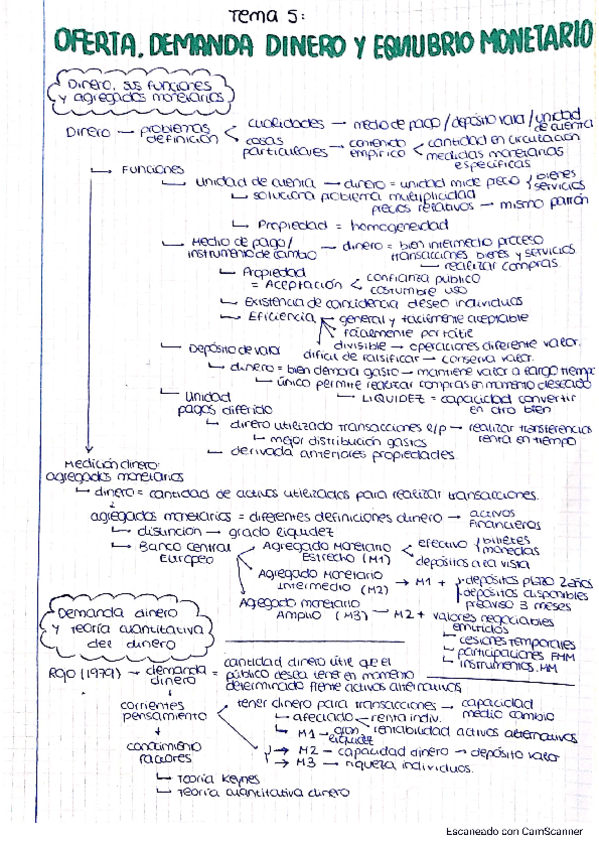 Tema 5:
OFERTA, DEMANDA DINERO Y EQUILIBRIO MONETARIO
Dinero, sus funciones
y agregados monetarios
Dinero → problemas definición < cualidades → medio de pago / depósito valor / unidad de cuenta
cosas particulares → contenido empírico < cantidad en circulación
medidas monetarias específicas
Funciones
Unidad de cuenta → dinero = unidad mide precio bienes y servicios
soluciona problema multiplicidad precios relativos → mismo patrón
Propiedad = homogeneidad
Medio de pago / instrumento de cambio → dinero = bien intermedio proceso transacciones bienes y servicios
realizar compras
Propiedad = Aceptación < confianza público
costumbre uso
Existencia de coincidencia deseo individuos
Eficiencia → general y fácilmente aceptable
fácilmente portátil
divisible → operaciones diferente valor.
difícil de falsificar → conserva valor.
Depósito de valor
dinero = bien demora gasto → mantiene valor a largo tiempo
único permite realizar compras en momento deseado
LIQUIDEZ = capacidad convertir en otro bien
Unidad pagos diferido
dinero utilizado transacciones c/p → realizar transferencias renta en tiempo
mejor distribución gastos
derivada anteriores propiedades
Medición dinero:
agregados monetarios
dinero = cantidad de activos utilizados para realizar transacciones.
agregados monetarios = diferentes definiciones dinero → activos financieros
distinción → grado liquidez
Banco Central Europeo
Agregado Monetario Estrecho (M1) < efectivo billetes monedas
depósitos a la vista
Agregado Monetario Intermedio (M2) → M1 + depósitos plazo 2 años
depósitos disponibles preaviso 3 meses
Agregado monetario Amplio (M3) → M2 + valores negociables emitidos
cesiones temporales
participaciones FMM
instrumentos MM
Demanda dinero
y teoría cuantitativa
del dinero
Rojo (1979) → demanda dinero = cantidad dinero útil que el público desea tener en momento determinado frente activos alternativos
corrientes pensamiento
tener dinero para transacciones → capacidad medio cambio
afectado < renta indiv.
rentabilidad activos alternativos
M1 → gran liquidez
M2 → capacidad dinero → depósito valor
M3 → riqueza individuos.
conocimiento factores
Teoría Keynes
Teoría cuantitativa dinero
Escaneado con CamScanner